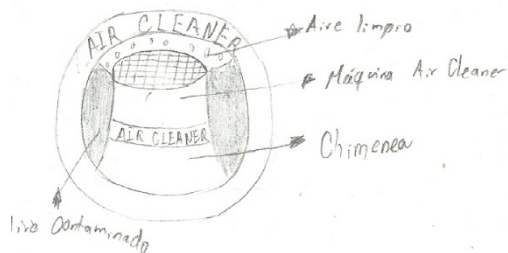 AIR CLEANER
Aire limpio
Máquina Air Cleaner
AIR CLEANER
Chimenea
Aire Contaminado